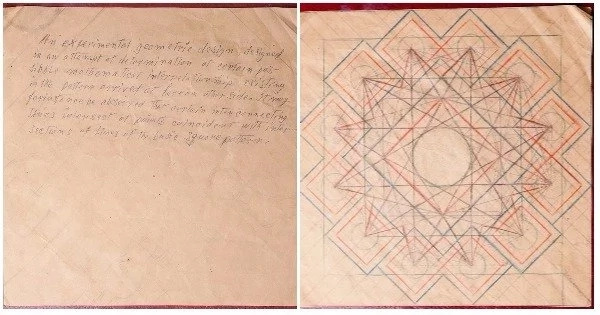 An experimental geometric design, designed
in an attempt at determination of certain pos-
sible mathematical interrelationship existing
in the pattern arrived at hereon other side. It may
for instance be observed that certain interconnecting
lines at points coincident with inter-
sections of lines of the basic square pattern.